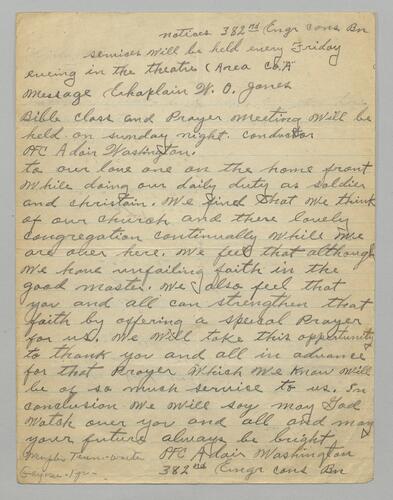 notices 382nd Engr cons Bn
services will be held every Friday
evening in the theatre (Area Co. "A"
Message Chaplain W. O. Jones
Bible Class and Prayer Meeting Will be
held on sunday night. conductor
PFC Adair Washington.
to our love one on the home front
While doing our daily duty as soldier
and christain. We find that We think
of our church and there lovely
congregation continually While We
are over here. We feel that although
We have unfailing faith in the
good master. We also feel that
you and all can strengthen that
faith by offering a special Prayer
for us. We Will take this opportunity
to thank you and all in advance
for that Prayer Which We Know Will
be of so much service to us. In
conclusion We Will say may God
Watch over you and all and may
your future always be bright
Memphis Tenn PFC Adair Washington
382nd Engr cons Bn